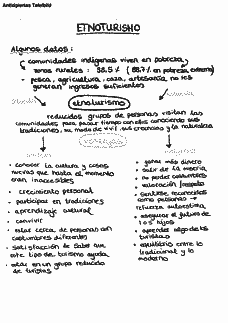 Anticiparios Telefold
ETNOTURISMO
Algunos datos:
comunidades indígenas viven en pobreza y
zonas rurales: 38,5% (88,7% en pobreza extrema)
pesca, agricultura, caza, artesanía no les
generan ingresos suficientes
etnoturismo
reducidos grupos de personas visitan las
comunidades para pasar tiempo con ellos conociendo sus
tradiciones, su modo de vivir, sus creencias y la naturaleza
ventajas
- conocer la cultura y cosas
nuevas que hasta el momento
eran inaccesibles
- crecimiento personal
- participar en tradiciones
- aprendizaje cultural
- convivir
- estar cerca de personas con
costumbres diferentes
- satisfacción de saber que
este tipo de turismo ayuda
- estar en un grupo reducido
de turistas
- ganar más dinero
- salir de la miseria
- no perder costumbres
- valoración/respeto
- sentirse reconocidos
como personas →
refuerza autoestima
- asegurar el futuro de
los hijos
- aprender algo de los
turistas
- equilibrio entre lo
tradicional y lo
moderno